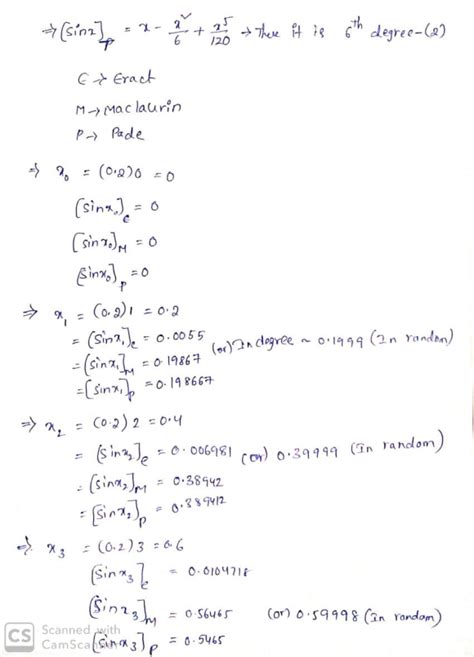 ⇒ [sinx]p = x - x^v/6 + x^5/120 → There it is 6th degree-(2)
E → Exact
M → Maclaurin
P → Pade
⇒ x0 = (0.2)0 = 0
[sinx0]e = 0
[sinx0]M = 0
[sinx0]p = 0
⇒ x1 = (0.2)1 = 0.2
= [sinx1]e = 0.0055 (or) In degree ~ 0.1999 (In random)
= [sinx1]M = 0.19867
= [sinx1]p = 0.198667
⇒ x2 = (0.2)2 = 0.4
= [sinx2]e = 0.006981 (or) 0.39999 (In random)
= [sinx2]M = 0.38942
= [sinx2]p = 0.389412
⇒ x3 = (0.2)3 = 0.6
[sinx3]e = 0.0104718
[sinx3]M = 0.56465 (or) 0.59998 (In random)
[sinx3]p = 0.5465
CS Scanned with
CamScan